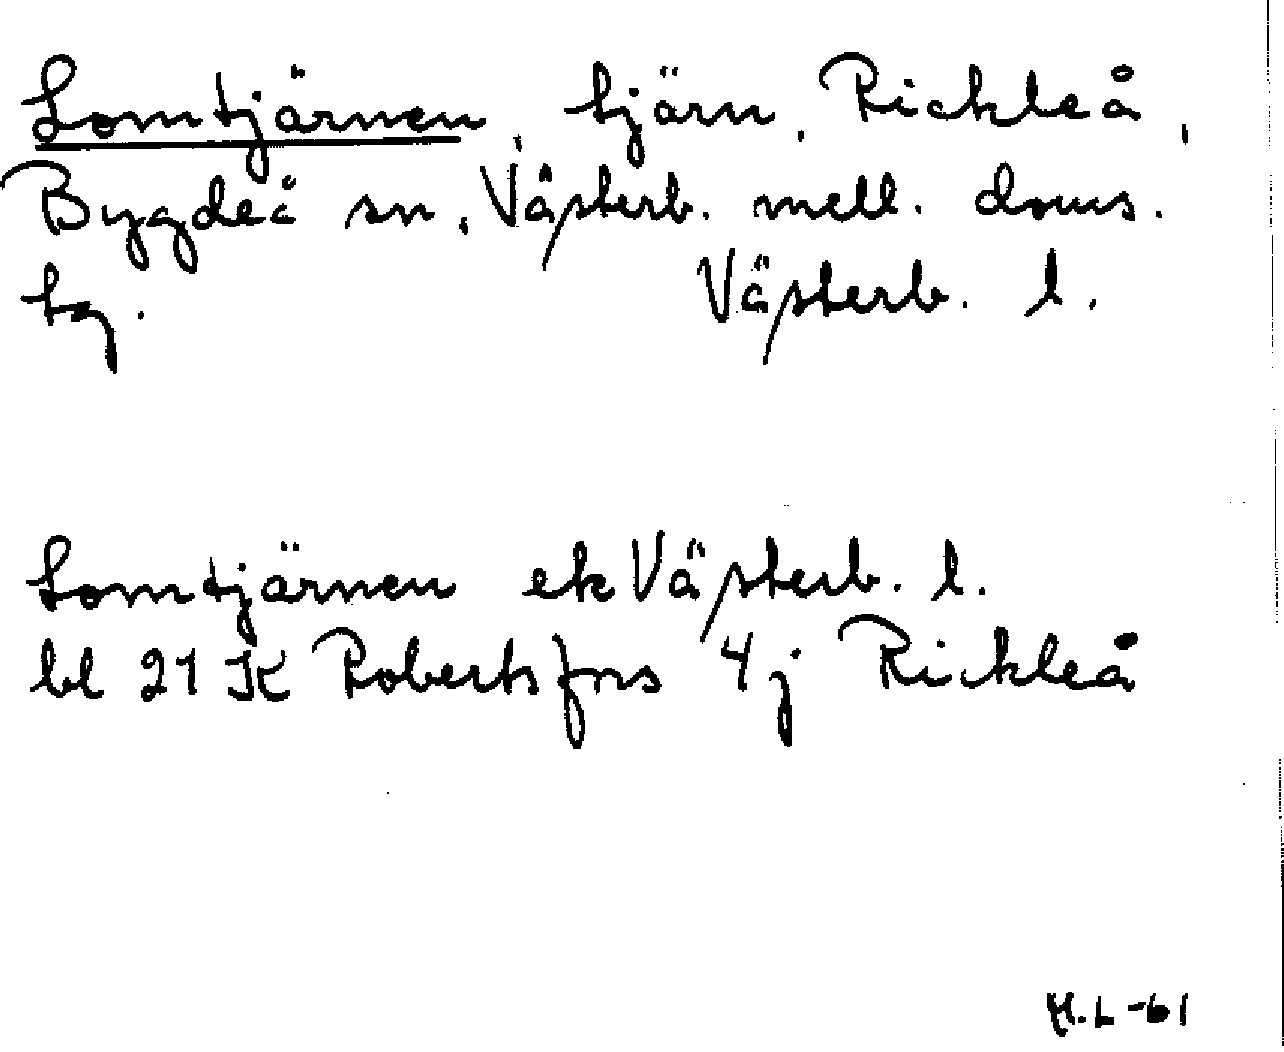 Lomtjärnen, tjärn, Rickleå,
Bygdeå sn, Västerb. mell. doms.
tg. Västerb. l.
Lomtjärnen ek Västerb. l.
bl 21 K Robertsfors 4j Rickleå
H.L -61